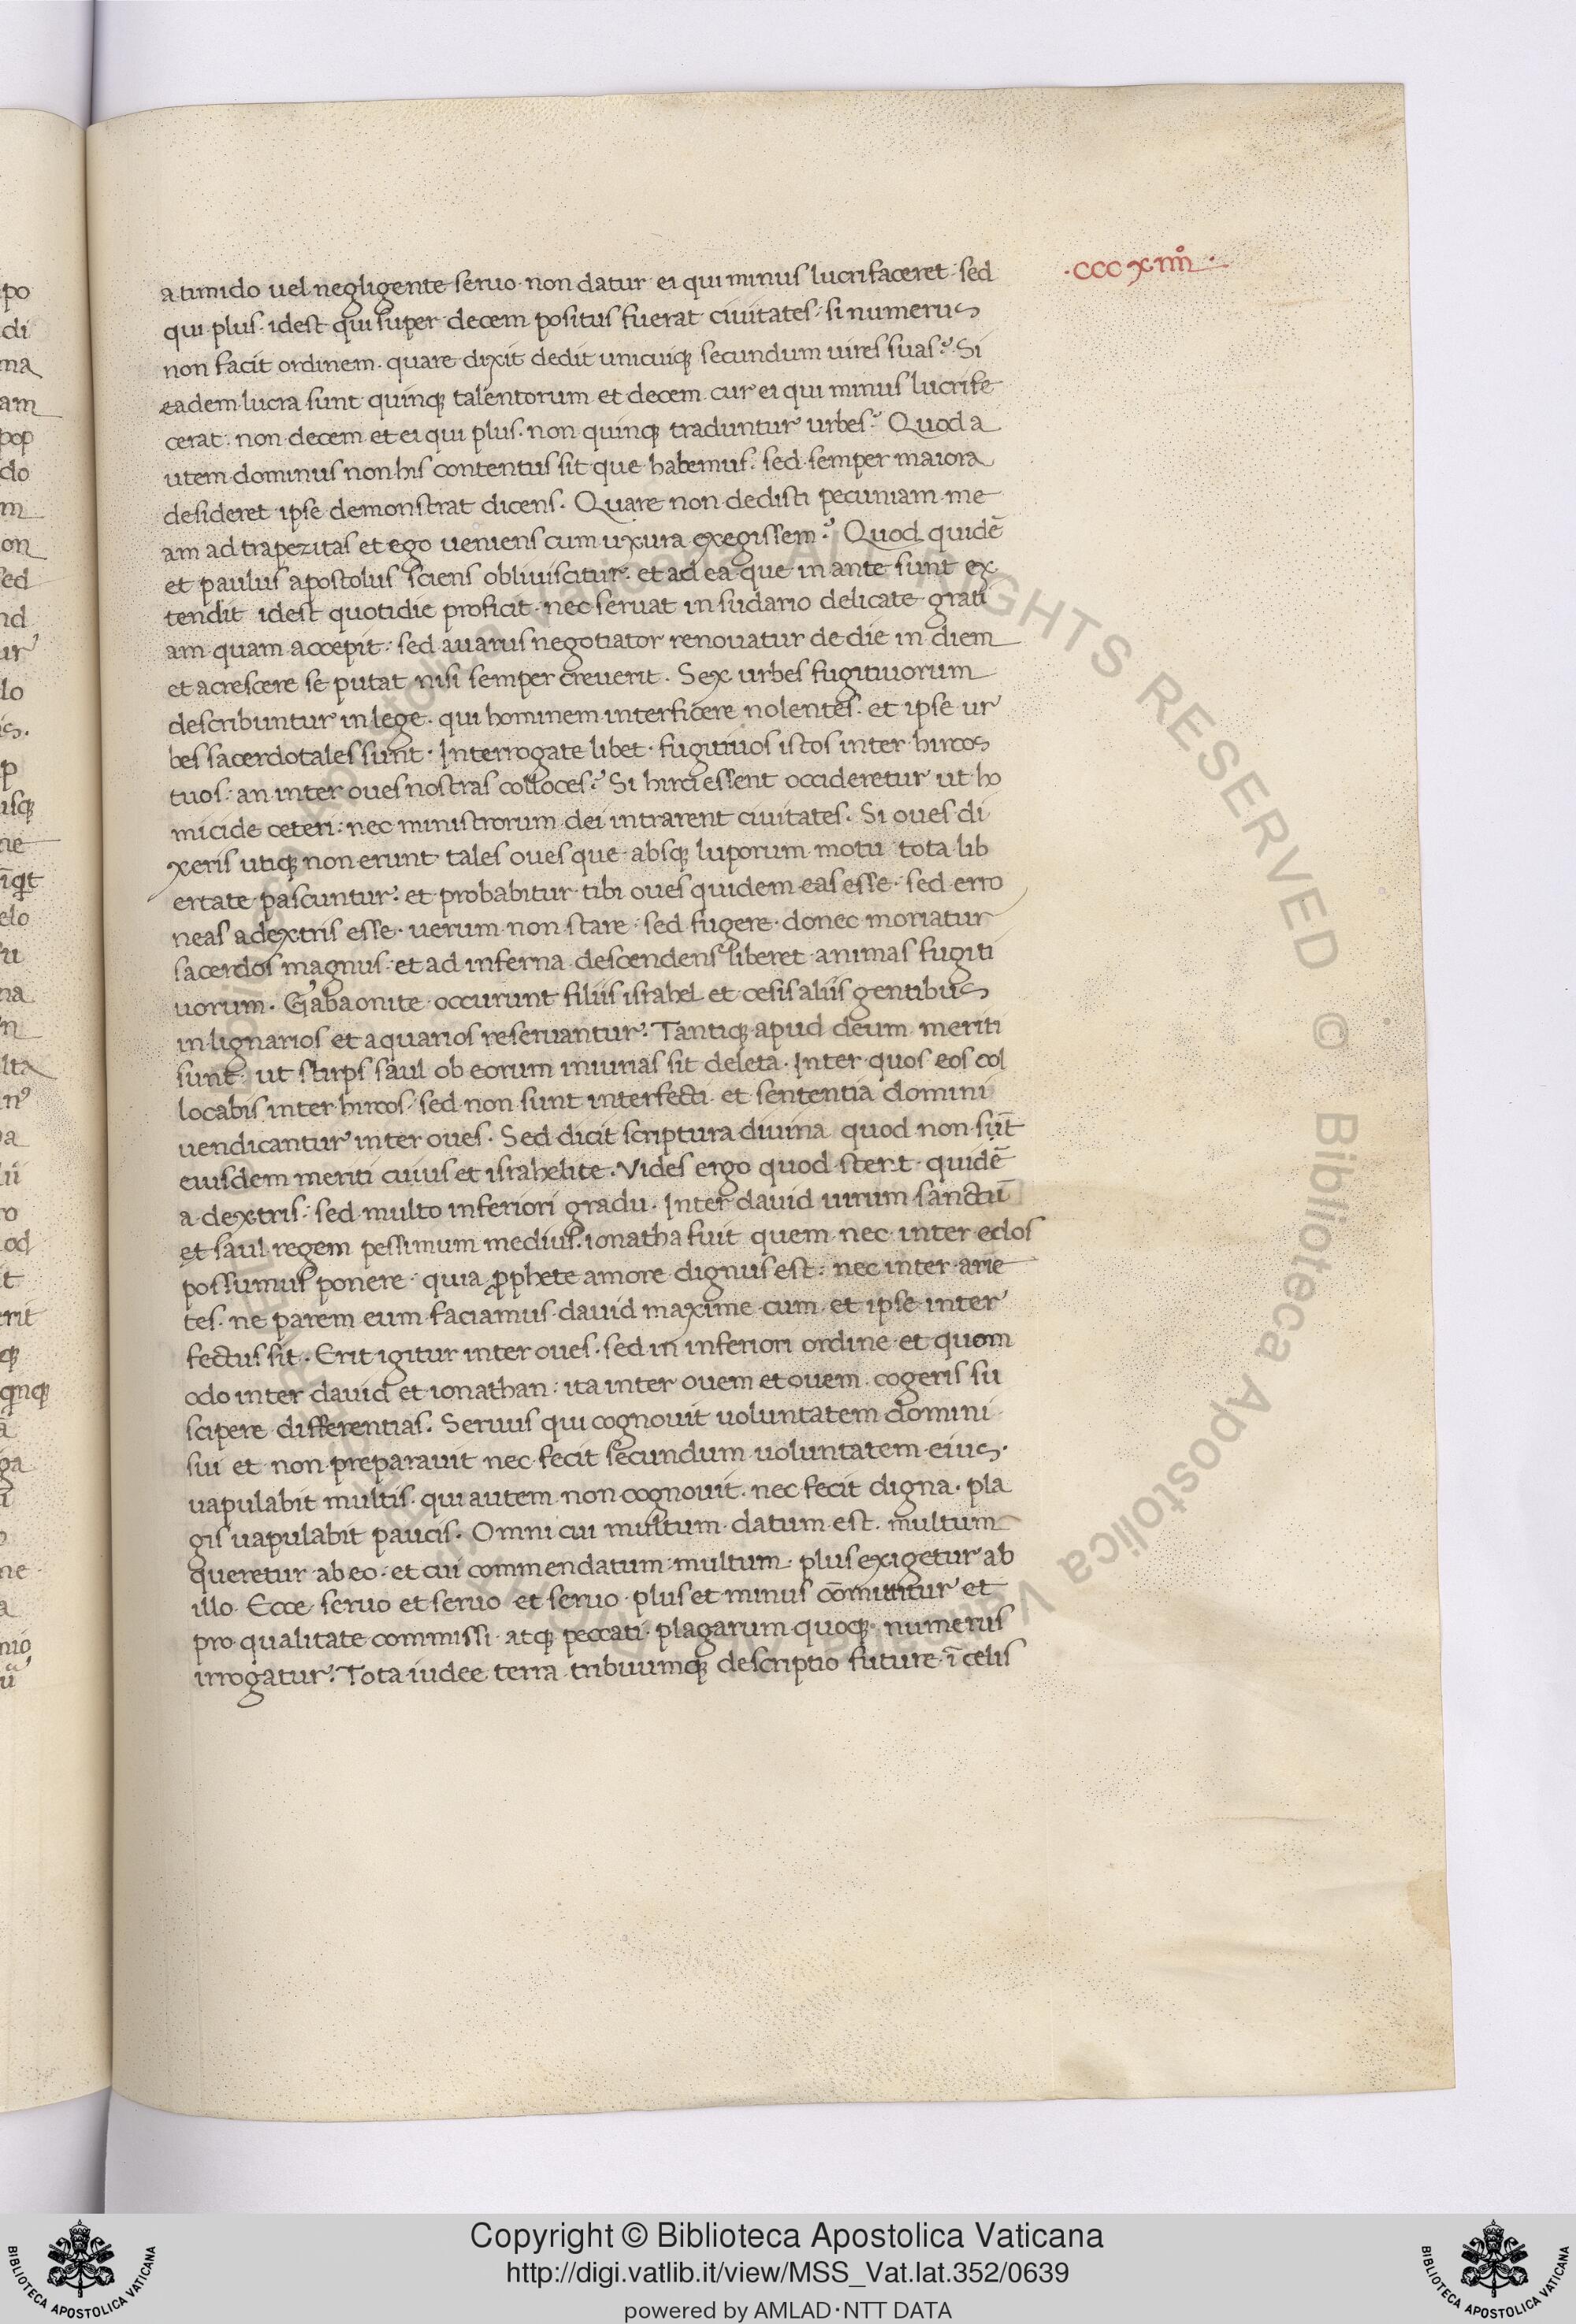 ·cccxiiii°·
a timido uel negligente seruo· non datur· ei qui minus lucrifaceret· sed
qui plus· idest qui super decem positus fuerat ciuitates· si numerus
non facit ordinem· quare dixit dedit unicuiq; secundum uires suas? Si
eadem lucra sunt quinq; talentorum et decem· cur ei qui minus lucrife
cerat· non decem et ei qui plus· non quinq; traduntur urbes? Quod a
utem dominus non his contentus sit que habemus· sed semper maiora
desideret ipse demonstrat dicens· Quare non dedisti pecuniam me
am ad trapezitas et ego ueniens cum uxura exegissem? Quod quidē
et paulus apostolus sciens obliuiscitur· et ad ea que in ante sunt ex
tendit idest quotidie proficit· nec seruat in sudario delicate grati
am quam accepit· sed auarus negotiator renouatur de die in diem
et acrescere se putat nisi semper creuerit· Sex urbes fugitiuorum
describuntur in lege· qui hominem interficere nolentes· et ipse ur
bes sacerdotales sunt· Interrogate libet· fugitiuos istos inter hircos
tuos· an inter oues nostras colloces? Si hirci essent occideretur ut ho
micide ceteri· nec ministrorum dei intrarent ciuitates· Si oues di
xeris utiq; non erunt tales oues que absq; luporum motu tota lib
ertate pascuntur· et probabitur tibi oues quidem eas esse· sed erro
neas adextris esse· uerum non stare· sed fugere· donec moriatur
sacerdos magnus· et ad inferna descendens liberet animas fugiti
uorum· Gabaonite occurunt filiis israhel et cesis aliis gentibus
in lignarios et aquarios reseruantur· Tantiq; apud deum meriti
sunt· ut stirps saul ob eorum iniurias sit deleta· Inter quos eos col
locabis inter hircos· sed non sunt interfecti et sententia domini
uendicantur inter oues· Sed dicit scriptura diuina quod non sūt
eiusdem meriti cuius et israhelite· Vides ergo quod stent quidē
a dextris· sed multo inferiori gradu· Inter dauid uirum sanctū
et saul regem pessimum medius· ionatha fuit quem nec inter edos
possumus ponere· quia ꝓphete amore dignus est· nec inter arie
tes· ne parem eum faciamus dauid maxime cum et ipse inter
fectus sit· Erit igitur inter oues· sed in inferiori ordine et quom
odo inter dauid et ionathan· ita inter ouem et ouem cogeris su
scipere differentias· Seruus qui cognouit uoluntatem domini
sui et non preparauit nec fecit secundum uoluntatem eius·
uapulabit multis· qui autem non cognouit· nec fecit digna· pla
gis uapulabit paucis· Omni cui multum datum est· multum
queretur ab eo· et cui commendatum multum· plus exigetur ab
illo· Ecce seruo et seruo et seruo plus et minus cōmittitur et
pro qualitate commissi· atq; peccati· plagarum quoq; numerus
irrogatur· Tota iudee terra tribuumq; descriptio future ī celis
Copyright © Biblioteca Apostolica Vaticana
http://digi.vatlib.it/view/MSS_Vat.lat.352/0639
powered by AMLAD·NTT DATA
BIBLIOTECA APOSTOLICA VATICANA
BIBLIOTECA APOSTOLICA VATICANA